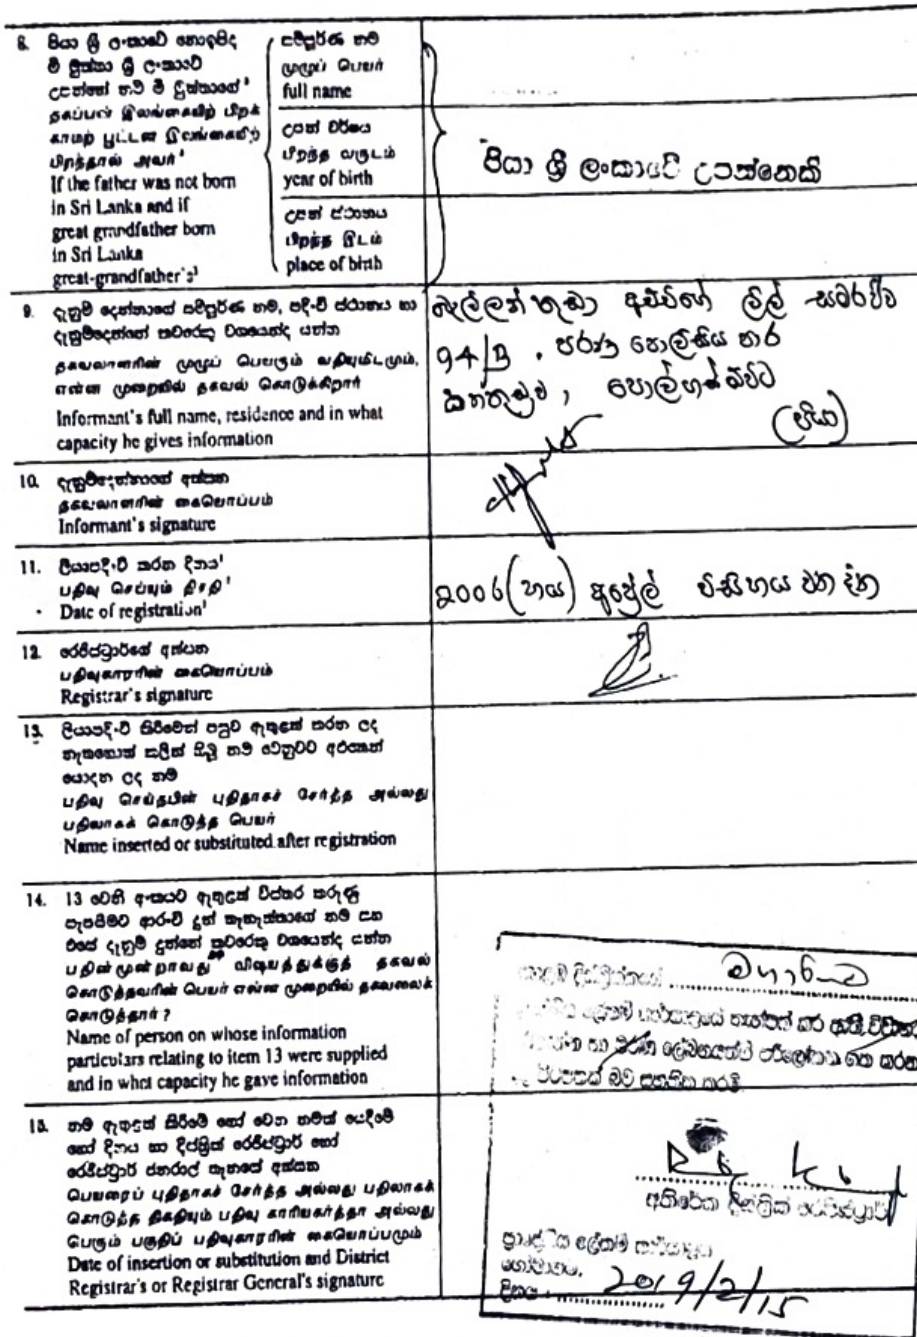 8. පියා ශ්‍රී ලංකාවේ නොඉපිද
මී මුත්තා ශ්‍රී ලංකාවේ
උපන්නේ නම් මී මුත්තාගේ¹
தகப்பன் இலங்கையிற் பிறக்
காமற் பூட்டன் இலங்கையிற்
பிறந்தால் அவர்¹
If the father was not born
in Sri Lanka and if
great grandfather born
in Sri Lanka
great-grandfather's¹
සම්පූර්ණ නම
முழுப் பெயர்
full name
උපන් වර්ෂය
பிறந்த வருடம்
year of birth
උපන් ස්ථානය
பிறந்த இடம்
place of birth
පියා ශ්‍රී ලංකාවේ උපන්නෙකි
9. දැනුම් දෙන්නාගේ සම්පූර්ණ නම, පදිංචි ස්ථානය හා
දැනුම්දෙන්නේ කවරෙකු වශයෙන්ද යන්න
தகவலாளரின் முழுப் பெயரும் வதியுமிடமும்,
என்ன முறையில் தகவல் கொடுக்கிறார்
Informant's full name, residence and in what
capacity he gives information
බැල්ලන්තුඩා අච්චිගේ ලිල් සමරජීව
94/B, පරණ පොලිසිය පාර
කන්තුඩුව, පොල්ගස්ඕවිට
(පියා)
10. දැනුම්දෙන්නාගේ අත්සන
தகவலாளரின் கையொப்பம்
Informant's signature
11. ලියාපදිංචි කරන දිනය¹
பதிவு செய்யும் திகதி¹
Date of registration¹
2006 (හය) අප්‍රේල් විසිහය වන දින
12. රෙජිස්ට්‍රාර්ගේ අත්සන
பதிவுகாரரின் கையொப்பம்
Registrar's signature
13. ලියාපදිංචි කිරීමෙන් පසුව ඇතුළත් කරන ලද
නැතහොත් කලින් තිබූ නම වෙනුවට අරගෙන්
යොදන ලද නම
பதிவு செய்தபின் புதிதாகச் சேர்த்த அல்லது
பதிலாகக் கொடுத்த பெயர்
Name inserted or substituted after registration
14. 13 වෙනි අංකයට ඇතුළත් විස්තර කරුණු
සැපයීමට ආරංචි දුන් තැනැත්තාගේ නම සහ
එසේ දැනුම් දුන්නේ කවරෙකු වශයෙන්ද යන්න
பதின்மூன்றாவது விஷயத்துக்குத் தகவல்
கொடுத்தவரின் பெயர் என்ன முறையில் தகவலைக்
கொடுத்தார் ?
Name of person on whose information
particulars relating to item 13 were supplied
and in what capacity he gave information
දිස්ත්‍රික්කයේ
ලේකම් කාර්යාලයේ තැන්පත් කර ඇති විවාහ
හා මරණ ලේඛනයන්හි
පිටපතක් බව සහතික කරමි
15. නම ඇතුළත් කිරීමේ හෝ වෙන නමක් යෙදීමේ
හෝ දිනය හා දිස්ත්‍රික් රෙජිස්ට්‍රාර් හෝ
රෙජිස්ට්‍රාර් ජනරාල් තැනගේ අත්සන
பெயரைப் புதிதாகச் சேர்த்த அல்லது பதிலாகக்
கொடுத்த திகதியும் பதிவு காரியகர்த்தா அல்லது
பெரும் பகுதிப் பதிவுகாரரின் கையொப்பமும்
Date of insertion or substitution and District
Registrar's or Registrar General's signature
අතිරේක දිස්ත්‍රික් රෙජිස්ට්‍රාර්
ප්‍රාදේශීය ලේකම් කාර්යාලය
හෝමාගම.
දිනය : 2019/2/15